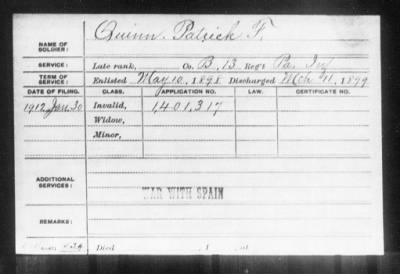 Quinn Patrick F.
NAME OF SOLDIER:
SERVICE: Late rank, Co. B, 13 Reg't Pa. Inf
TERM OF SERVICE: Enlisted May 10, 1898 Discharged Mch 11, 1899
DATE OF FILING. CLASS. APPLICATION NO. LAW. CERTIFICATE NO.
1912 Jan. 30 Invalid, 1,401,317
Widow,
Minor,
ADDITIONAL SERVICES:
WAR WITH SPAIN
REMARKS:
Died , 1 , at